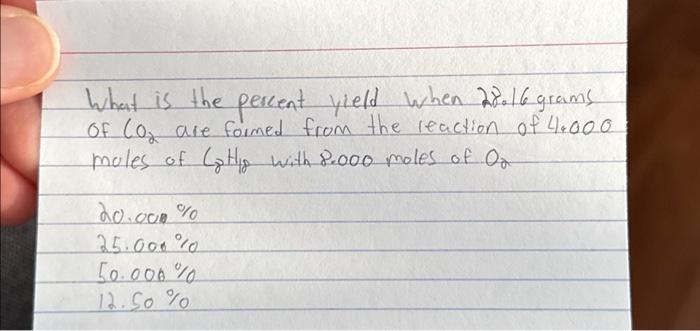 What is the percent yield when 28.16 grams
of CO₂ are formed from the reaction of 4.000
moles of C₈H₁₈ with 8.000 moles of O₂
20.000 %
25.000 %
50.000 %
12.50 %